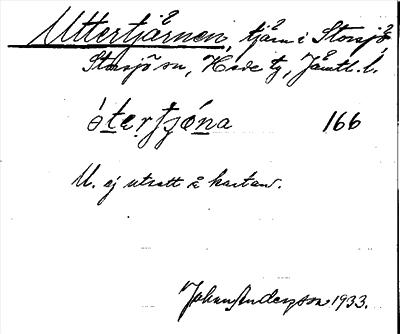 Uttertjärnen, tjärn i Storsjö,
Storsjö sn, Hede tg, Jämtl. l.
ó̀terţʒóna 166
U. ej utsatt å kartan.
Johan Anderzson 1933.